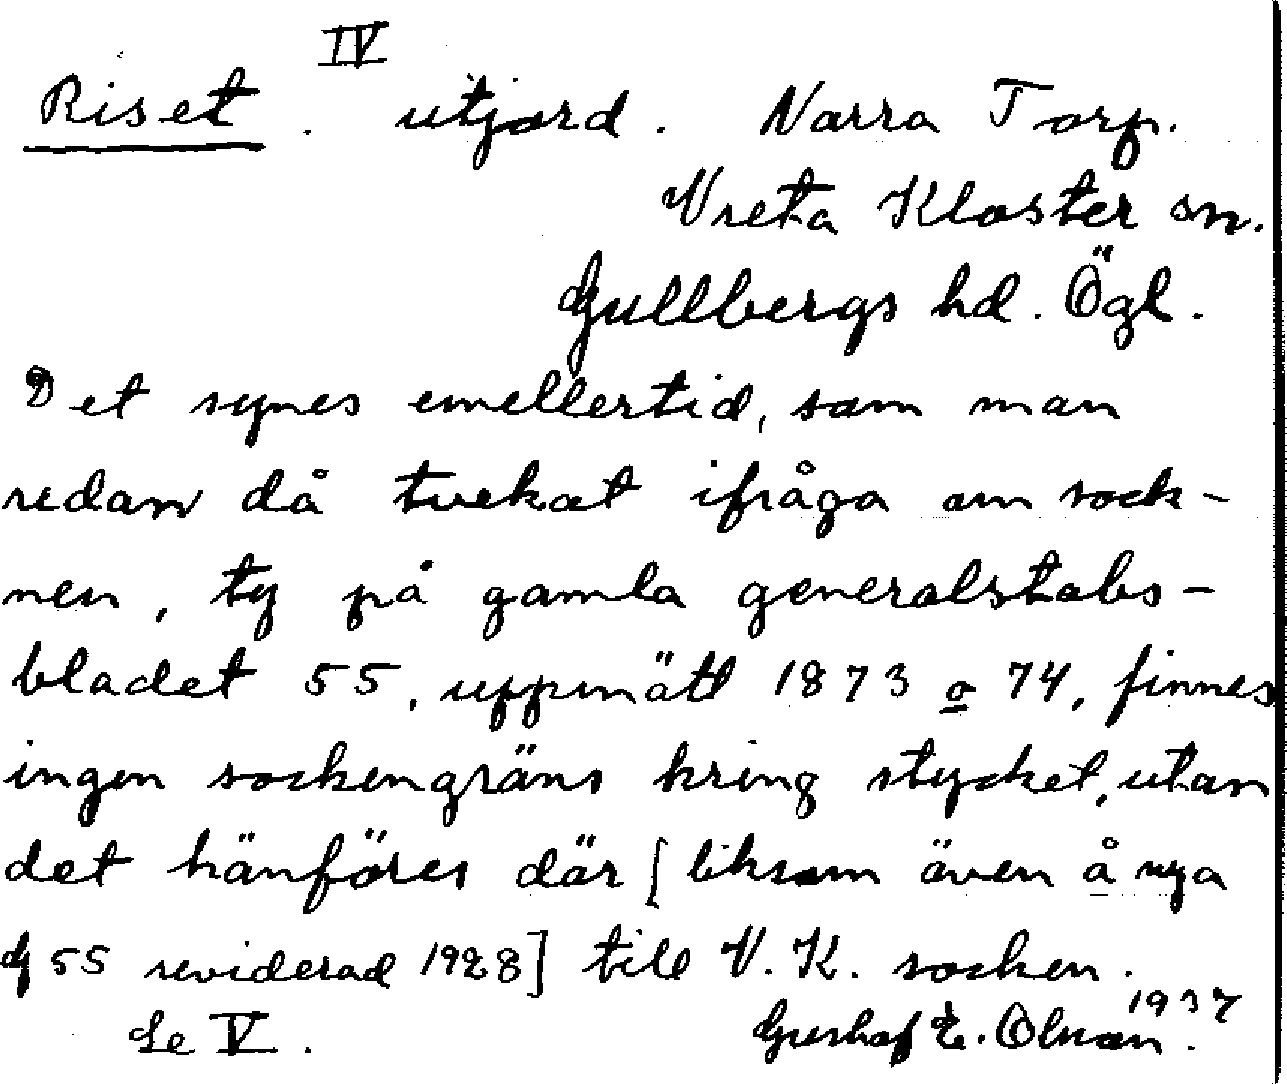 IV
Riset. utjord. Norra Torp.
Vreta Kloster sn.
Gullbergs hd. Ögl.
Det synes emellertid, som man
redan då tvekat ifråga om sock-
nen, ty på gamla generalstabs-
bladet 55, uppmätt 1873 o 74, finnes
ingen sockengräns kring stycket, utan
det hänföres där [liksom även å nya
G 55 reviderad 1928] till V. K. socken.
Se V. Gustaf E. Olsson. 1937